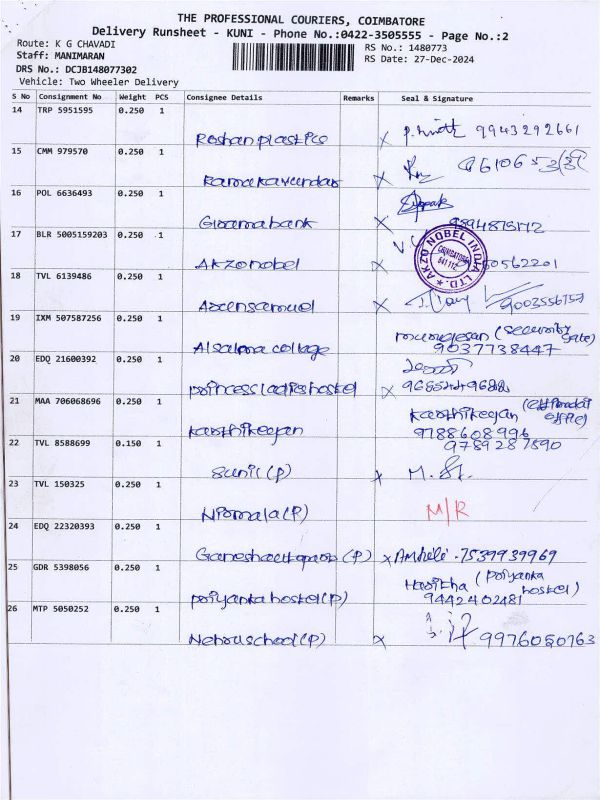 THE PROFESSIONAL COURIERS, COIMBATORE
Delivery Runsheet - KUNI - Phone No.:0422-3505555 - Page No.:2
Route: K G CHAVADI
RS No.: 1480773
Staff: MANIMARAN
RS Date: 27-Dec-2024
DRS No.: DCJB148077302
Vehicle: Two Wheeler Delivery
S No Consignment No Weight PCS Consignee Details Remarks Seal & Signature
14 TRP 5951595 0.250 1
Roshan plastics x 9943292661
15 CMM 979570 0.250 1
x
16 POL 6636493 0.250 1
bank x
17 BLR 5005159203 0.250 1
Akzonobel x
AKZO NOBEL INDIA LTD.
COIMBATORE
18 TVL 6139486 0.250 1
x 9003556757
19 IXM 507587256 0.250 1
murugesan (security gate)
college 9037738447
20 EDQ 21600392 0.250 1
princess ladies hostel x
21 MAA 706068696 0.250 1
karthikeyan
karthikeyan 9788608996
9789287590
22 TVL 8588699 0.150 1
Sunil (P) x
23 TVL 150325 0.250 1
Nirmala (P) M/R
24 EDQ 22320393 0.250 1
(P) x 7539939969
25 GDR 5398056 0.250 1
Haritha (Priyanka hostel)
priyanka hostel (P) 9442402481
26 MTP 5050252 0.250 1
Nehru school (P) x 9976050763